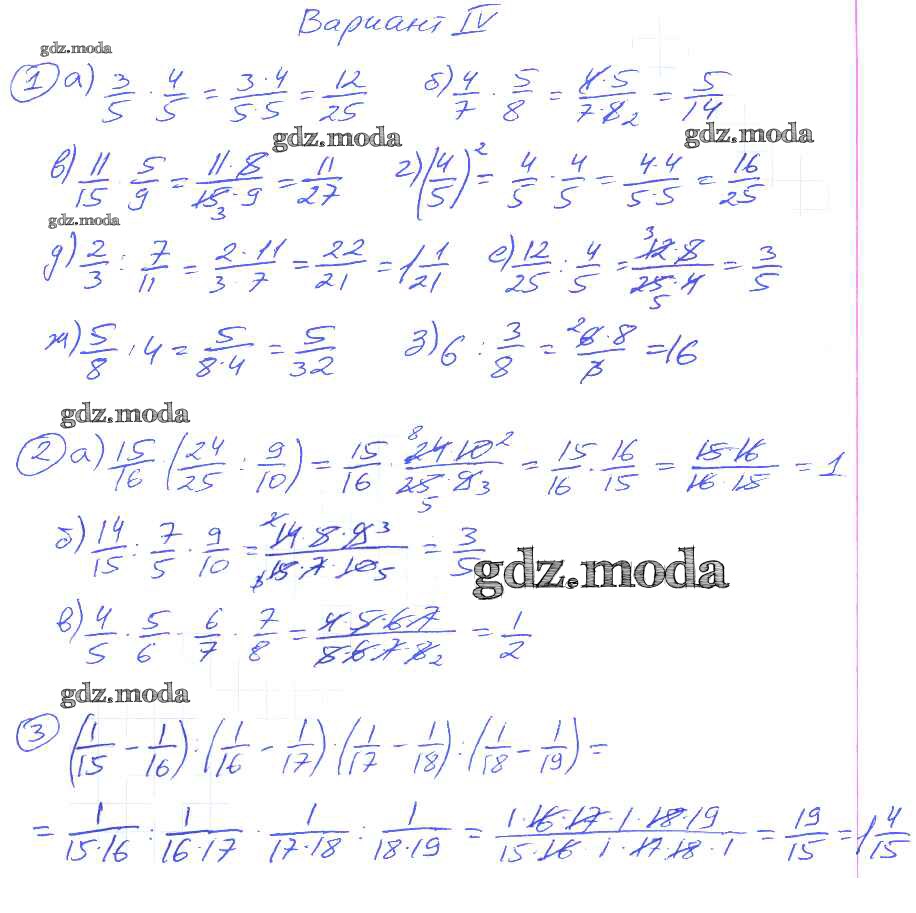 Вариант IV
gdz.moda
1 а) 3/5 · 4/5 = 3·4/5·5 = 12/25 б) 4/7 · 5/8 = 4·5/7·8 2 = 5/14
gdz.moda gdz.moda
в) 11/15 · 5/9 = 11·5/15·9 3 = 11/27 г) (4/5)² = 4/5 · 4/5 = 4·4/5·5 = 16/25
gdz.moda
д) 2/3 : 7/11 = 2·11/3·7 = 22/21 = 1 1/21 е) 12/25 : 4/5 = 3 12·5/25·4 5 = 3/5
ж) 5/8 : 4 = 5/8·4 = 5/32 з) 6 : 3/8 = 2 6·8/3 = 16
gdz.moda
2 а) 15/16 · (24/25 : 9/10) = 15/16 · 8 24·10 2/25·9 5 3 = 15/16 · 16/15 = 15·16/16·15 = 1
б) 14/15 : 7/5 · 9/10 = 2 14·5·9 3/3 15·7·10 5 = 3/5
gdz.moda
в) 4/5 · 5/6 · 6/7 · 7/8 = 4·5·6·7/5·6·7·8 2 = 1/2
gdz.moda
3 (1/15 − 1/16) : (1/16 − 1/17) · (1/17 − 1/18) : (1/18 − 1/19) =
= 1/15·16 : 1/16·17 · 1/17·18 : 1/18·19 = 1·16·17·1·18·19/15·16·1·17·18·1 = 19/15 = 1 4/15